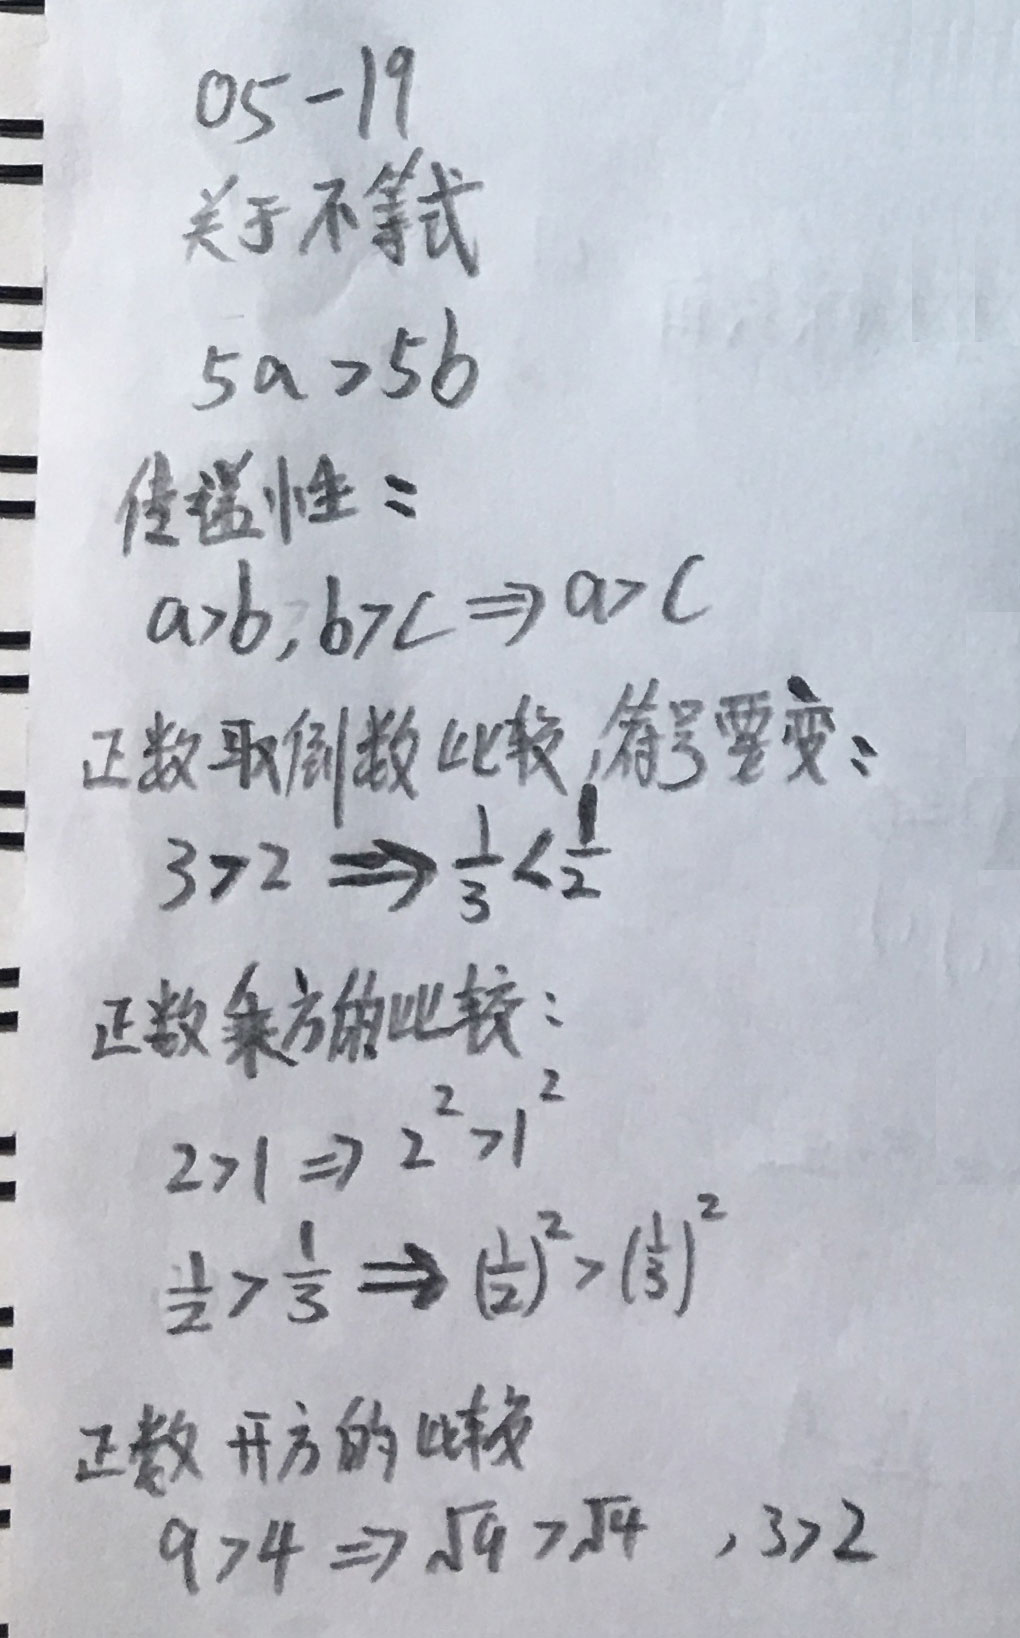 05-19
关于不等式
5a>5b
传递性:
a>b,b>c⇒a>c
正数取倒数比较,符号要变:
3>2⇒1/3<1/2
正数乘方的比较:
2>1⇒2²>1²
1/2>1/3⇒(1/2)²>(1/3)²
正数开方的比较
9>4⇒√9>√4,3>2